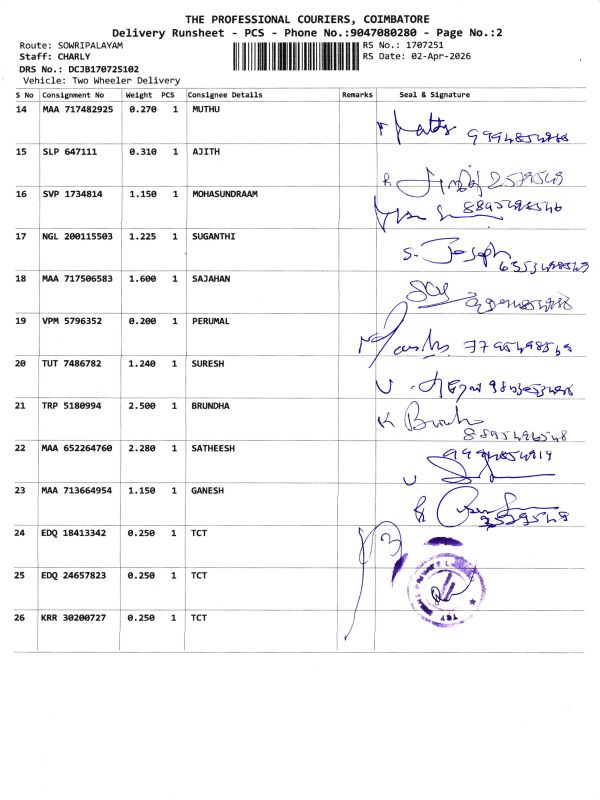 THE PROFESSIONAL COURIERS, COIMBATORE
Delivery Runsheet - PCS - Phone No.:9047080280 - Page No.:2
Route: SOWRIPALAYAM RS No.: 1707251
Staff: CHARLY RS Date: 02-Apr-2026
DRS No.: DCJB170725102
Vehicle: Two Wheeler Delivery
S No Consignment No Weight PCS Consignee Details Remarks Seal & Signature
14 MAA 717482925 0.270 1 MUTHU
15 SLP 647111 0.310 1 AJITH
16 SVP 1734814 1.150 1 MOHASUNDRAAM
17 NGL 200115503 1.225 1 SUGANTHI
S. Joseph
18 MAA 717506583 1.600 1 SAJAHAN
19 VPM 5796352 0.200 1 PERUMAL
20 TUT 7486782 1.240 1 SURESH
21 TRP 5180994 2.500 1 BRUNDHA
K
22 MAA 652264760 2.280 1 SATHEESH
23 MAA 713664954 1.150 1 GANESH
24 EDQ 18413342 0.250 1 TCT
25 EDQ 24657823 0.250 1 TCT
26 KRR 30200727 0.250 1 TCT